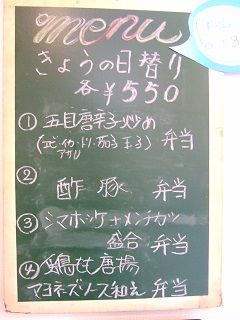 menu
きょうの日替り
各￥550
① 五目唐辛子炒め
(エビ・イカ・トリ・茄子 玉子
アサリ) 弁当
② 酢豚 弁当
③ シマホッケ+メンチカツ
盛合 弁当
④ 鶏もも唐揚
マヨネーズソース和え 弁当